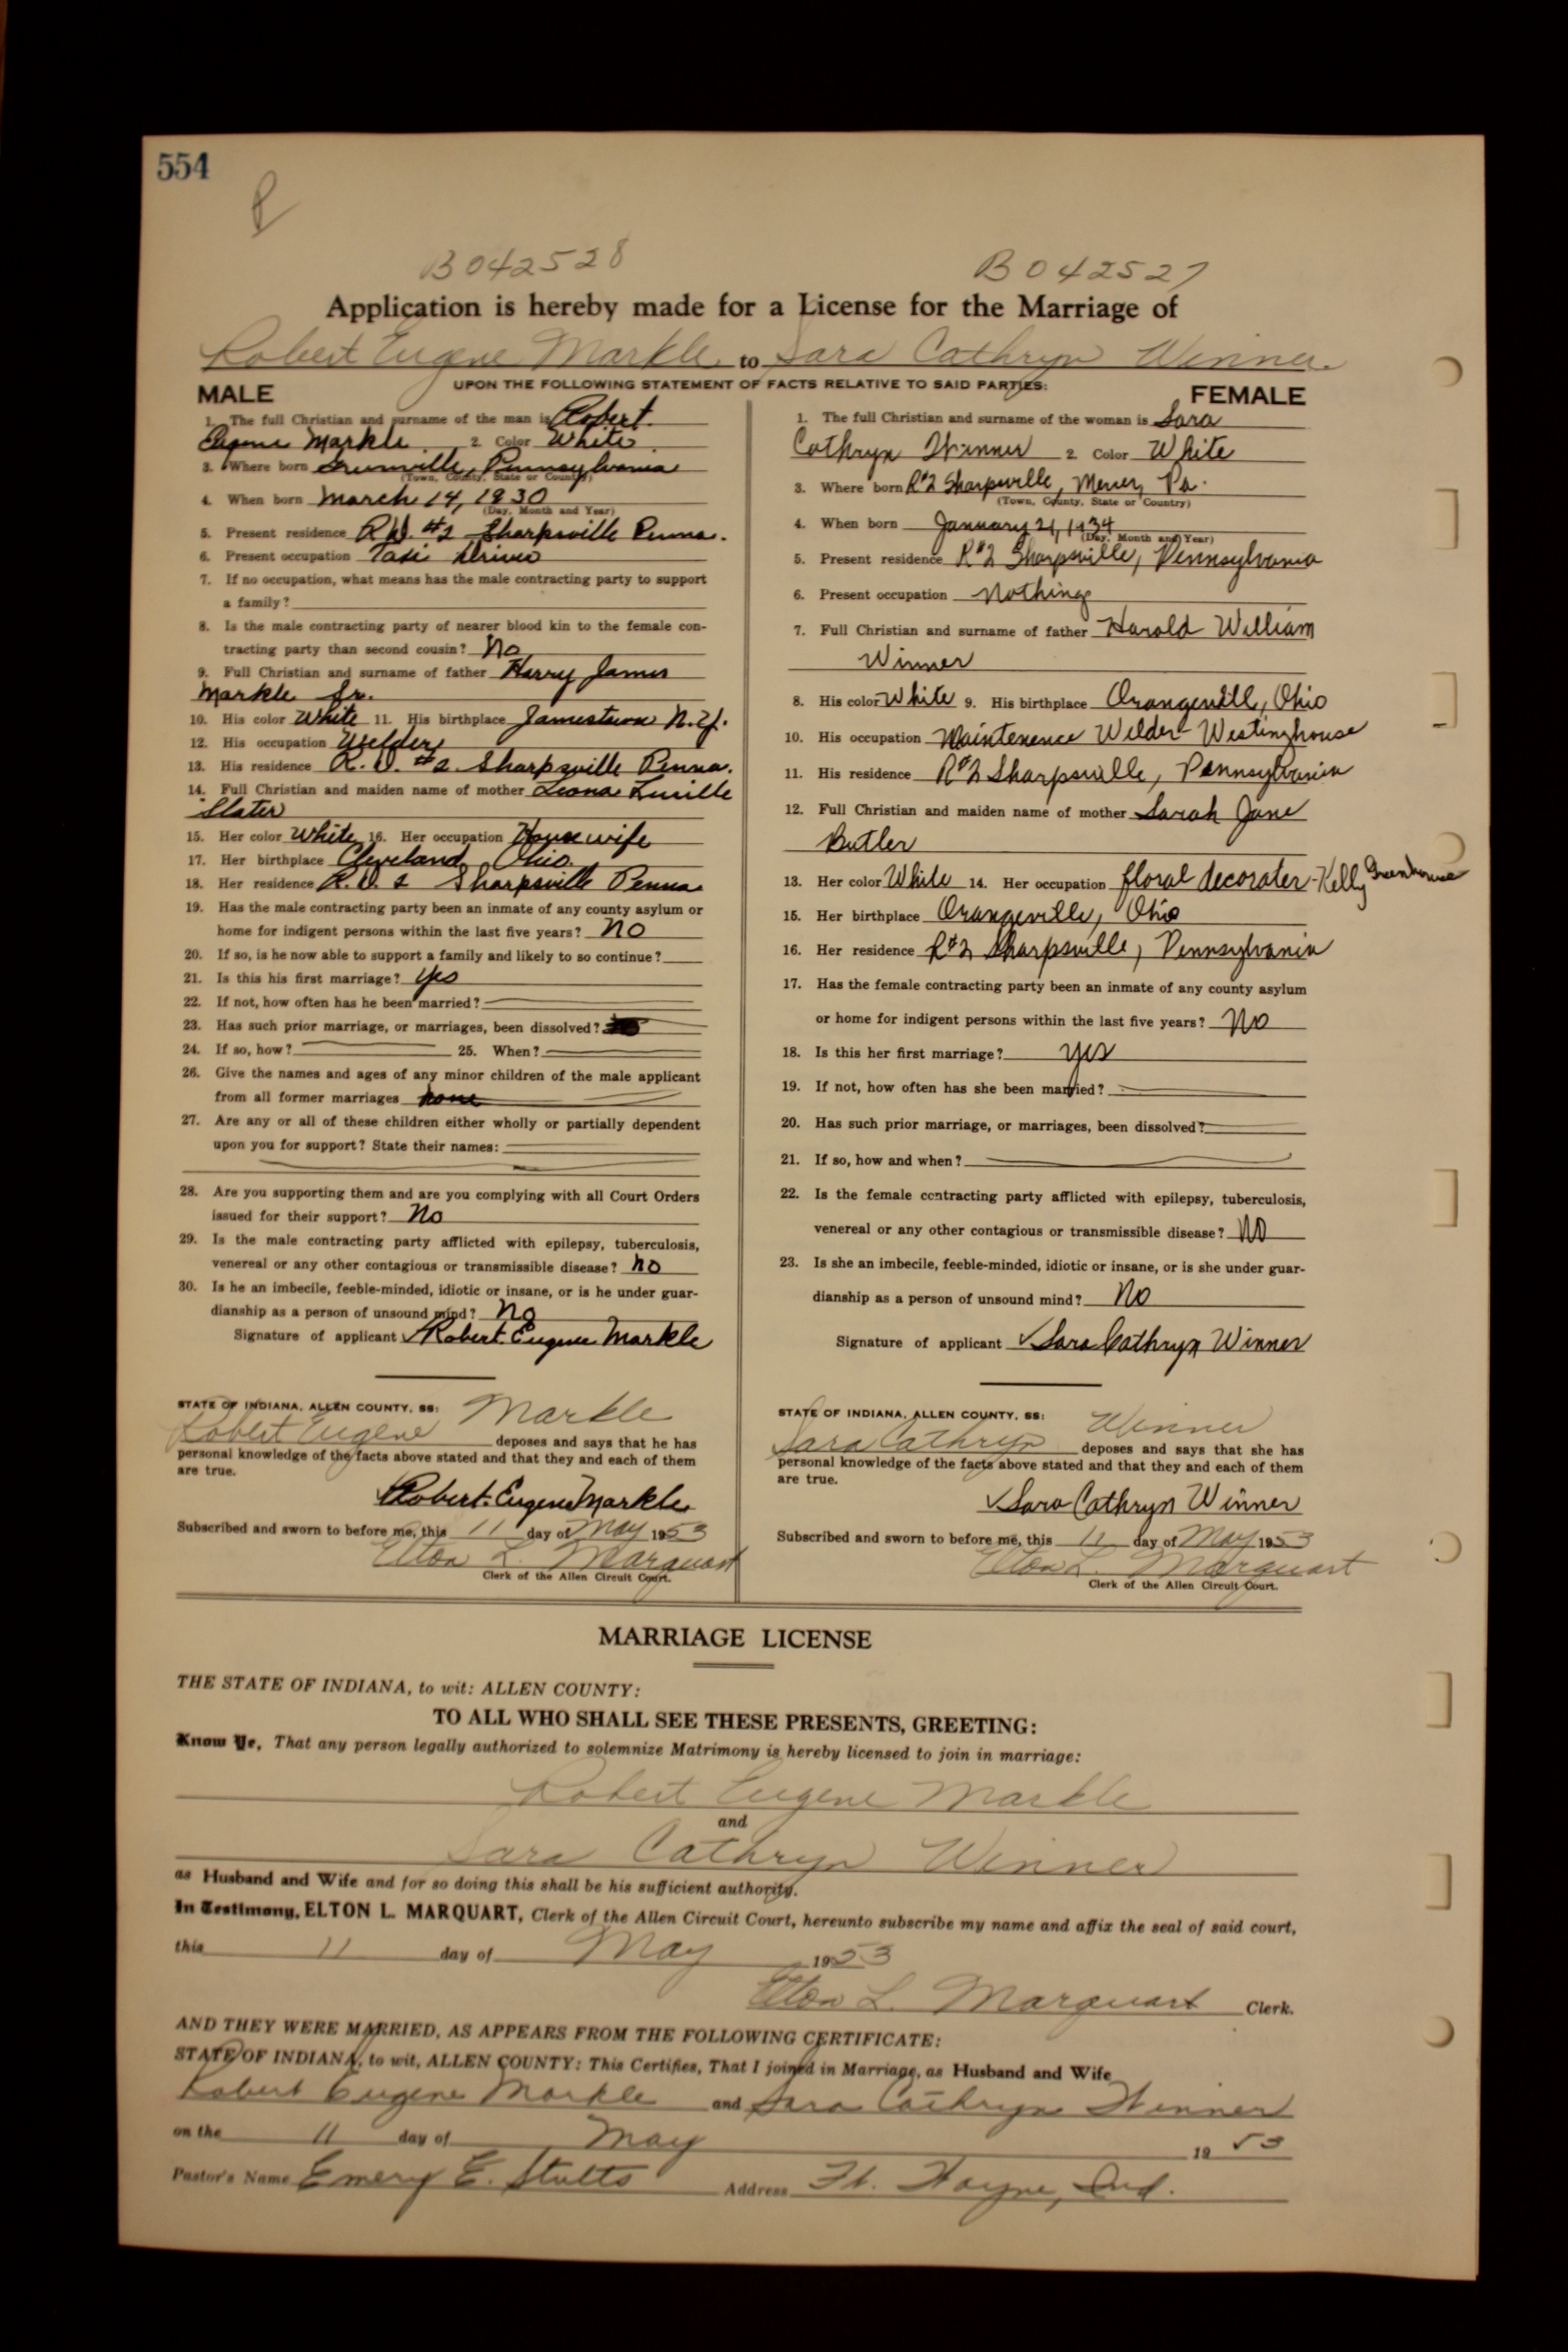 554
B042528 B042527
Application is hereby made for a License for the Marriage of
Robert Eugene Markle to Sara Cathryn Winner.
UPON THE FOLLOWING STATEMENT OF FACTS RELATIVE TO SAID PARTIES:
MALE
1. The full Christian and surname of the man is Robert
Eugene Markle 2. Color White
3. Where born Pennsylvania
(Town, County, State or Country)
4. When born March 14, 1930
(Day, Month and Year)
5. Present residence R.D. #2 Sharpsville Penna.
6. Present occupation Taxi Driver
7. If no occupation, what means has the male contracting party to support
a family?
8. Is the male contracting party of nearer blood kin to the female con-
tracting party than second cousin? No
9. Full Christian and surname of father Harry James
Markle Sr.
10. His color White 11. His birthplace Jamestown N.Y.
12. His occupation Welder
13. His residence R.D. #2 Sharpsville Penna.
14. Full Christian and maiden name of mother Leona Lucille
Slater
15. Her color White 16. Her occupation Housewife
17. Her birthplace Cleveland, Ohio.
18. Her residence R.D. 2 Sharpsville Penna
19. Has the male contracting party been an inmate of any county asylum or
home for indigent persons within the last five years? No
20. If so, is he now able to support a family and likely to so continue?
21. Is this his first marriage? yes
22. If not, how often has he been married?
23. Has such prior marriage, or marriages, been dissolved?
24. If so, how? 25. When?
26. Give the names and ages of any minor children of the male applicant
from all former marriages none
27. Are any or all of these children either wholly or partially dependent
upon you for support? State their names:
28. Are you supporting them and are you complying with all Court Orders
issued for their support? No
29. Is the male contracting party afflicted with epilepsy, tuberculosis,
venereal or any other contagious or transmissible disease? no
30. Is he an imbecile, feeble-minded, idiotic or insane, or is he under guar-
dianship as a person of unsound mind? No
Signature of applicant Robert Eugene Markle
STATE OF INDIANA, ALLEN COUNTY, SS: Markle
Robert Eugene deposes and says that he has
personal knowledge of the facts above stated and that they and each of them
are true.
Robert Eugene Markle
Subscribed and sworn to before me, this 11 day of May 1953
Elton L. Marquart
Clerk of the Allen Circuit Court.
FEMALE
1. The full Christian and surname of the woman is Sara
Cathryn Winner 2. Color White
3. Where born R#2 Sharpsville, Mercer, Pa.
(Town, County, State or Country)
4. When born January 21, 1934
(Day, Month and Year)
5. Present residence R#2 Sharpsville, Pennsylvania
6. Present occupation Nothing
7. Full Christian and surname of father Harold William
Winner
8. His color White 9. His birthplace Orangeville, Ohio
10. His occupation Maintenence Wilder - Westinghouse
11. His residence R#2 Sharpsville, Pennsylvania
12. Full Christian and maiden name of mother Sarah Jane
Butler
13. Her color White 14. Her occupation floral decorater - Kelly Greenhouse
15. Her birthplace Orangeville, Ohio
16. Her residence R#2 Sharpsville, Pennsylvania
17. Has the female contracting party been an inmate of any county asylum
or home for indigent persons within the last five years? No
18. Is this her first marriage? yes
19. If not, how often has she been married?
20. Has such prior marriage, or marriages, been dissolved?
21. If so, how and when?
22. Is the female contracting party afflicted with epilepsy, tuberculosis,
venereal or any other contagious or transmissible disease? No
23. Is she an imbecile, feeble-minded, idiotic or insane, or is she under guar-
dianship as a person of unsound mind? No
Signature of applicant Sara Cathryn Winner
STATE OF INDIANA, ALLEN COUNTY, SS: Winner
Sara Cathryn deposes and says that she has
personal knowledge of the facts above stated and that they and each of them
are true.
Sara Cathryn Winner
Subscribed and sworn to before me, this 11 day of May 1953
Elton L. Marquart
Clerk of the Allen Circuit Court.
MARRIAGE LICENSE
THE STATE OF INDIANA, to wit: ALLEN COUNTY:
TO ALL WHO SHALL SEE THESE PRESENTS, GREETING:
Know Ye, That any person legally authorized to solemnize Matrimony is hereby licensed to join in marriage:
Robert Eugene Markle
and
Sara Cathryn Winner
as Husband and Wife and for so doing this shall be his sufficient authority.
In Testimony, ELTON L. MARQUART, Clerk of the Allen Circuit Court, hereunto subscribe my name and affix the seal of said court,
this 11 day of May 1953
Elton L. Marquart Clerk.
AND THEY WERE MARRIED, AS APPEARS FROM THE FOLLOWING CERTIFICATE:
STATE OF INDIANA, to wit, ALLEN COUNTY: This Certifies, That I joined in Marriage, as Husband and Wife
Robert Eugene Markle and Sara Cathryn Winner
on the 11 day of May 1953
Pastor's Name Emery E. Stults Address Ft. Wayne, Ind.